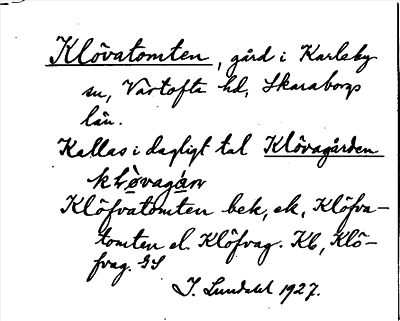 Klövatomten, gård i Karleby
sn, Vartofta hd, Skaraborgs
län.
Kallas i dagligt tal Klövagården
klòvagàrn
Klöfvatomten bek, ek, Klöfva-
tomten el. Klöfvag. Kb, Klö-
fvag. GS
I. Lundahl 1927.